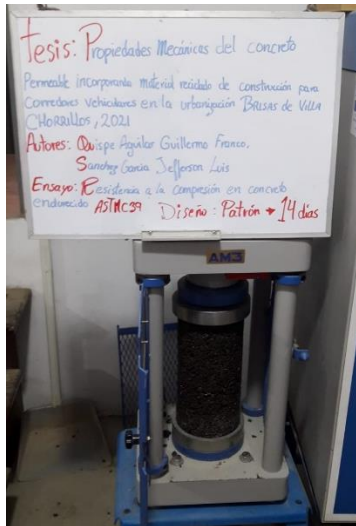 Tesis: Propiedades Mecánicas del concreto
Permeable incorporando material reciclado de construcción para
Corredores vehiculares en la urbanización BRISAS de VILLA
CHORRILLOS, 2021
Autores: Quispe Aguilar Guillermo Franco.
Sanchez Garcia Jefferson Luis
Ensayo: Resistencia a la compresión en concreto
endurecido ASTMC39 Diseño: Patrón → 14 días
AM3